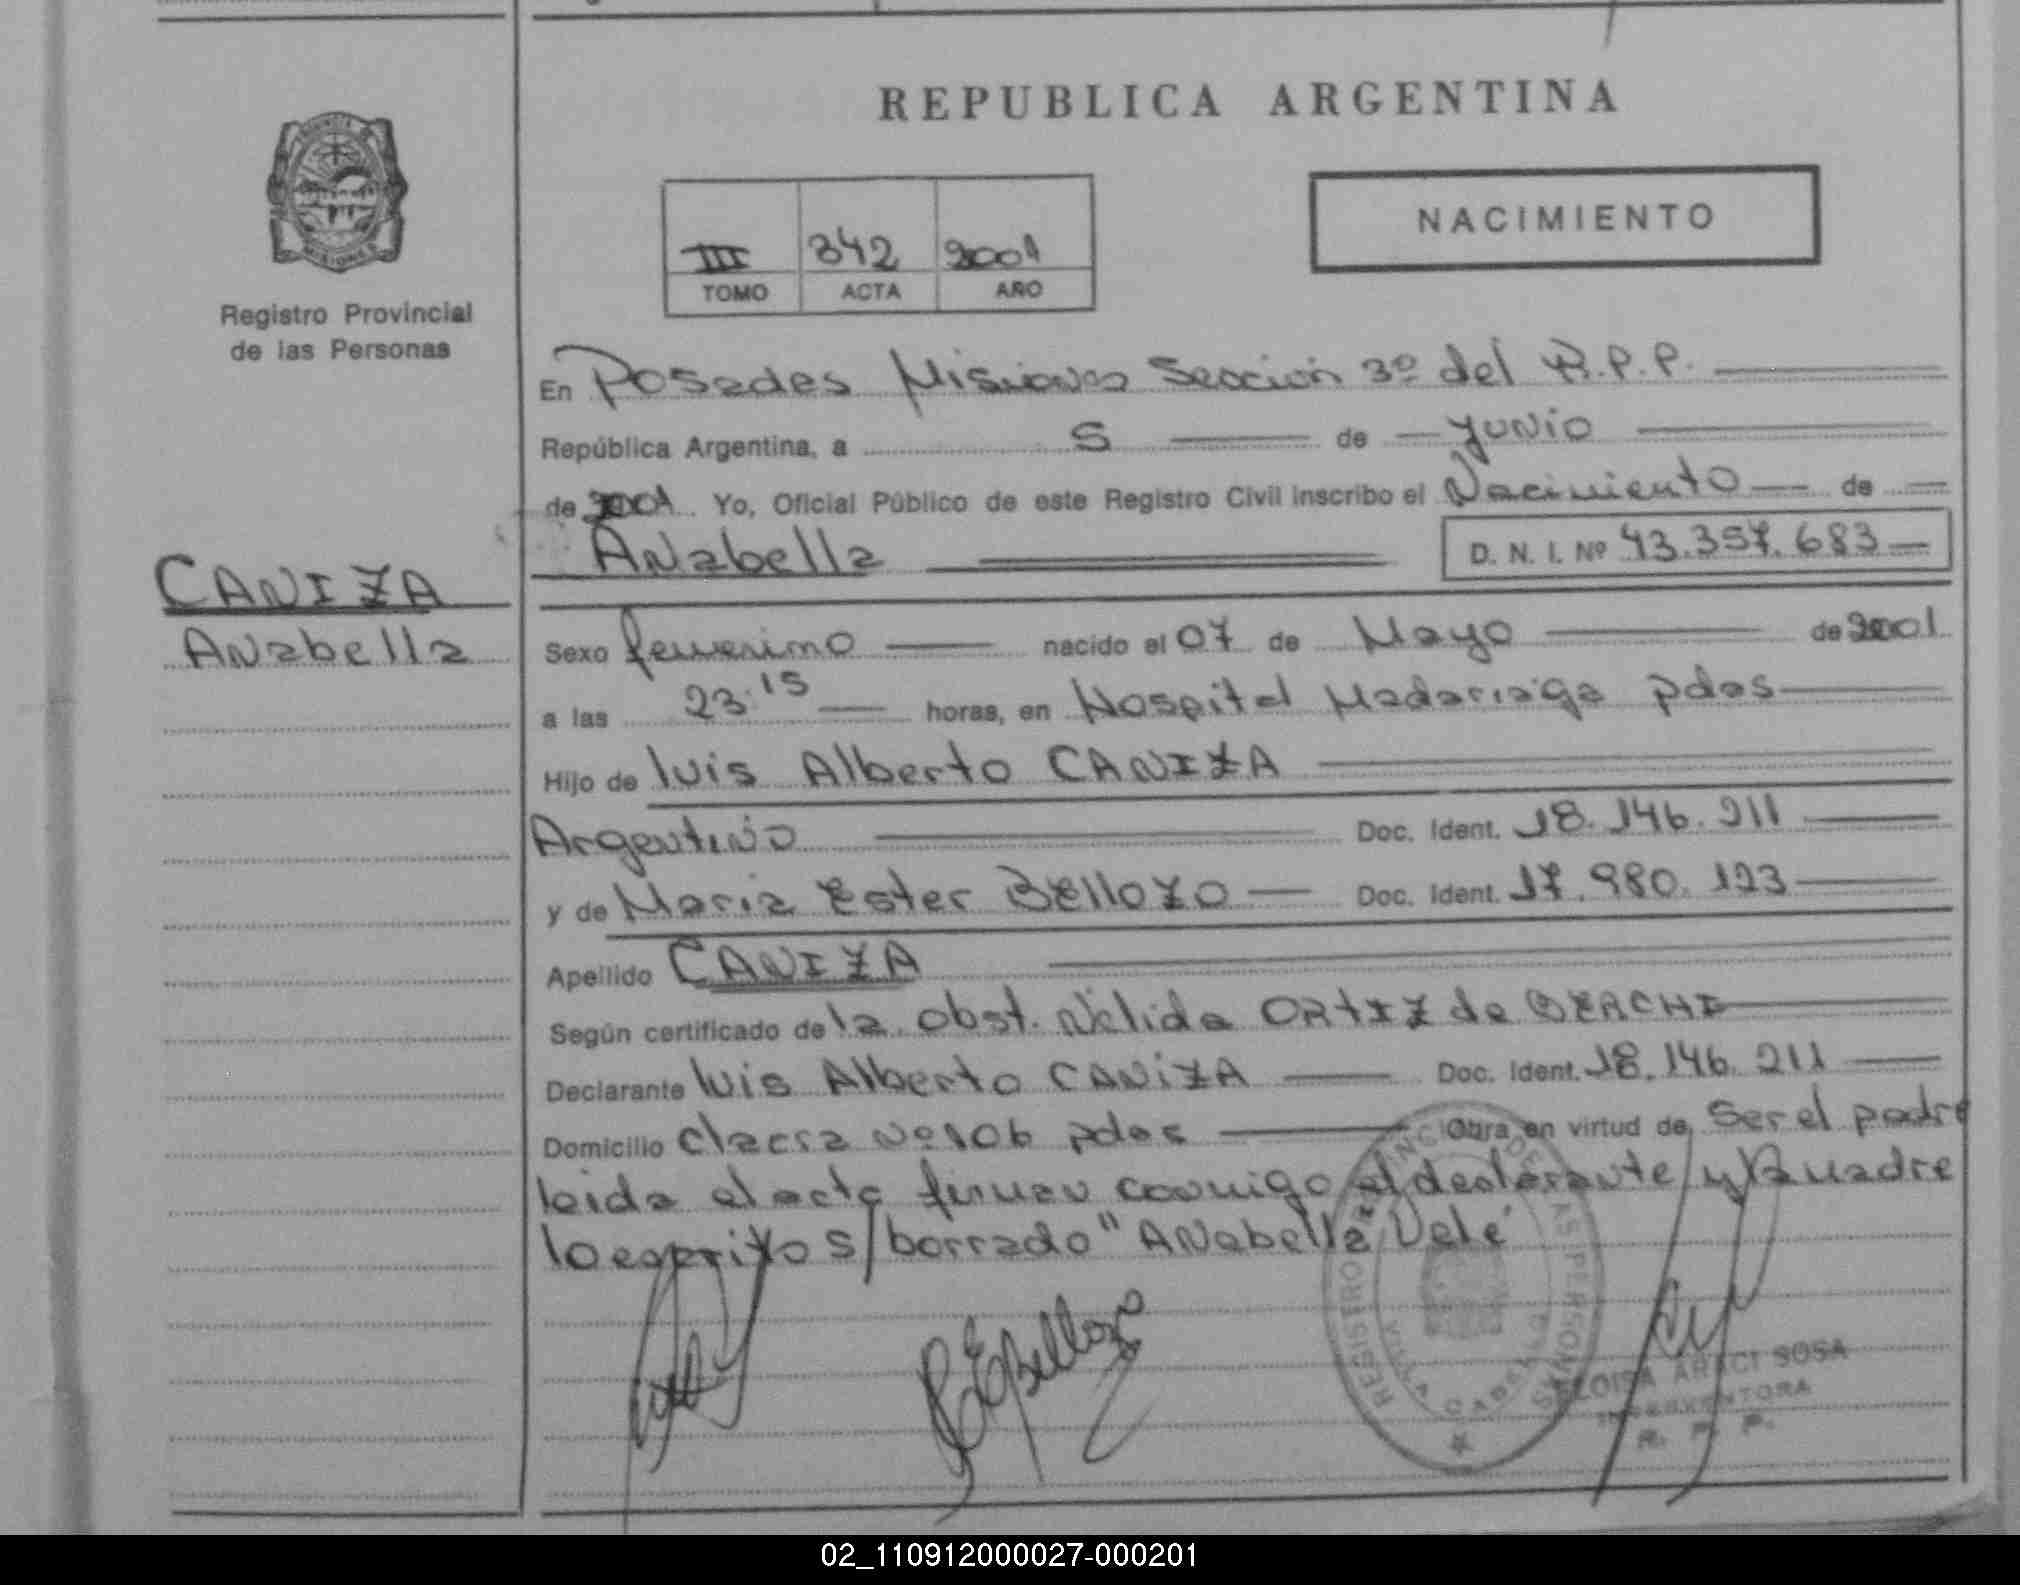 REPUBLICA ARGENTINA
PROVINCIA DE
MISIONES
Registro Provincial
de las Personas
III 342 2001
TOMO ACTA AÑO
NACIMIENTO
En Posadas Misiones Sección 3º del R.P.P.
República Argentina, a 5 de Junio
de 2001 Yo, Oficial Público de este Registro Civil inscribo el Nacimiento de
Anabella D. N. I. Nº 43.357.683
CANIZA
Anabella
Sexo femenino nacido el 07 de Mayo de 2001
a las 23:15 horas, en Hospital Madariaga pdas
Hijo de luis Alberto CANIZA
Argentino Doc. Ident. 18.146.211
y de Maria Ester BEllOZO Doc. Ident. 17.980.123
Apellido CANIZA
Según certificado de la obst. Nélida ORtIZ de
Declarante luis Alberto CANiZA Doc. Ident. 18.146.211
Domicilio chacra Nº 106 pdas Obra en virtud de Ser el padre
leida el acta firman conmigo el declarante y madre
lo escrito s/borrado "Anabella Vale
ELOISA ARACI SOSA
INTERVENTORA
R. P. P.
02_110912000027-000201